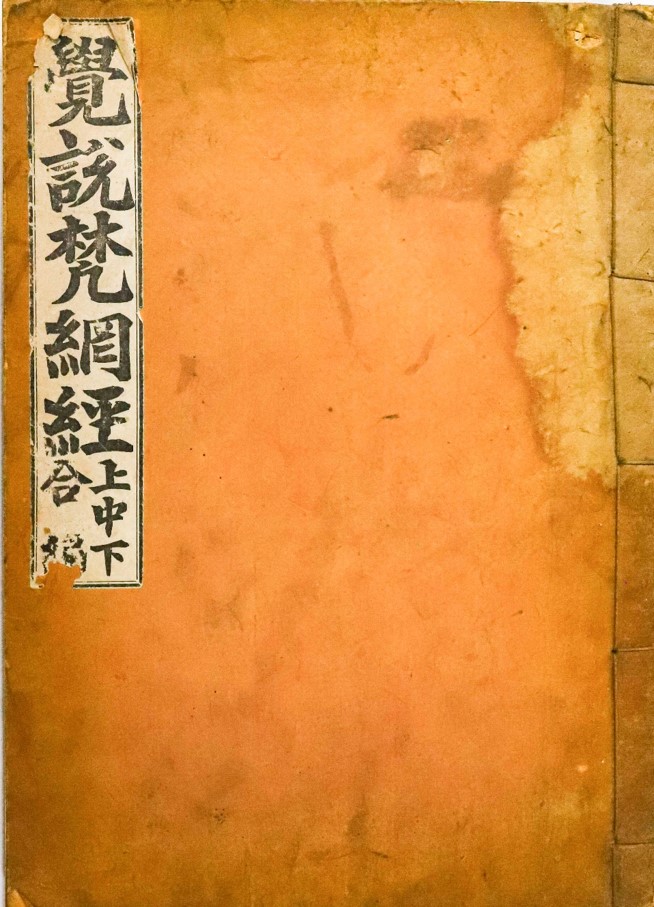 覺說梵網經
上中下
合